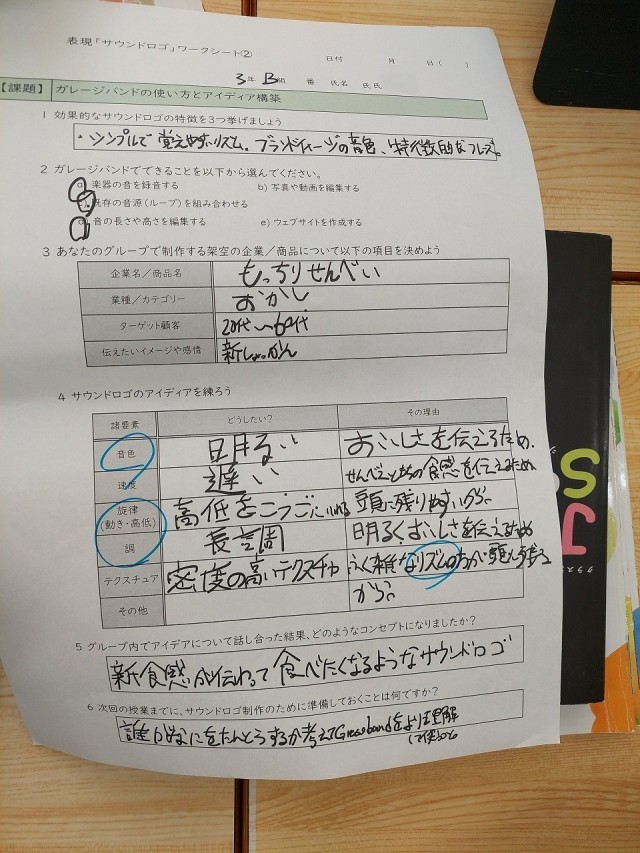 表現「サウンドロゴ」ワークシート②
日付 月 日( )
3年 B組 番 氏名 氏氏
【課題】 ガレージバンドの使い方とアイディア構築
1 効果的なサウンドロゴの特徴を3つ挙げましょう
・シンプルで覚えやすいリズム。ブランドイメージの音色、特徴的なフレーズ。
2 ガレージバンドでできることを以下から選んでください。
a) 楽器の音を録音する b) 写真や動画を編集する
既存の音源(ループ)を組み合わせる
d) 音の長さや高さを編集する e) ウェブサイトを作成する
3 あなたのグループで制作する架空の企業/商品について以下の項目を決めよう
企業名/商品名 もっちりせんべい
業種/カテゴリー おかし
ターゲット顧客 20代〜60代
伝えたいイメージや感情 新しょっかん
4 サウンドロゴのアイディアを練ろう
諸要素 どうしたい? その理由
音色 明るい おいしさを伝えるため、
速度 遅い せんべえともちの食感を伝えるため
旋律(動き・高低) 高低をこうごにいれる 頭に残りやすいから。
調 長調 明るくおいしさを伝えるため
テクスチュア 密度の高いテクスチャ ふく雑なリズムの方が頭に残る
から。
その他
5 グループ内でアイデアについて話し合った結果、どのようなコンセプトになりましたか?
新食感が伝わって食べたくなるようなサウンドロゴ
6 次回の授業までに、サウンドロゴ制作のために準備しておくことは何ですか?
誰がなにをたんとうするか考えてGarebandをより理解